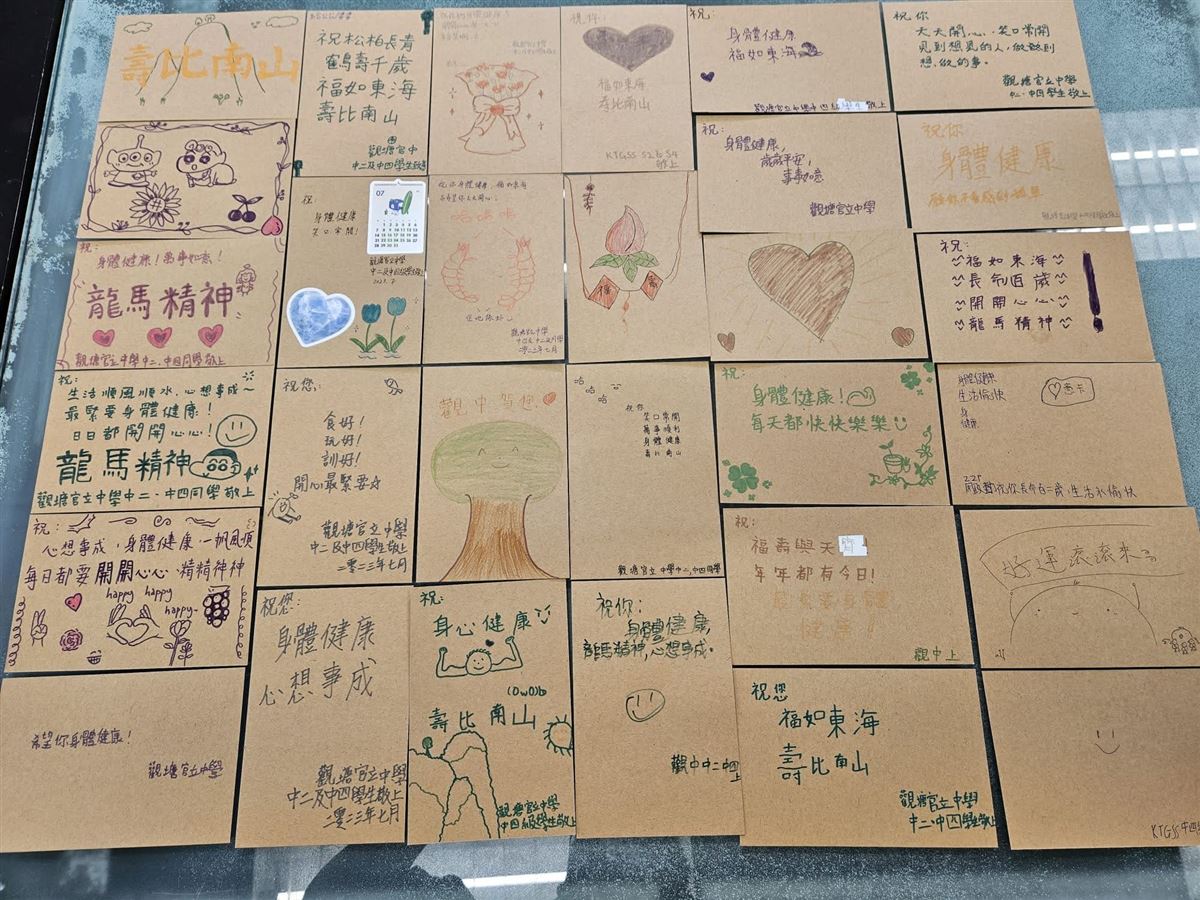 壽比南山
祝松柏長青
鶴壽千歲
福如東海
壽比南山
觀塘官中
中二及中四學生敬
祝你:
福如東海
壽比南山
KTGSS S2& S4
敬上
祝:
身體健康
福如東海
觀塘官立中學中四學生敬上
祝你
天天開心、笑口常開
見到想見的人,做做到
想做的事。
觀塘官立中學
中二、中四學生敬上
祝:
身體健康,
歲歲平安,
事事如意
觀塘官立中學
祝你
身體健康
祝:
身體健康!萬事如意!
龍馬精神
觀塘官立中學中二、中四同學敬上
祝:
身體健康
笑口常開!
07
觀塘官立中學
中二及中四級學生敬上
2023.7
祝你身體健康,福如東海
哈哈哈
觀塘官立中學
二零二三年七月
福
壽
祝:
福如東海
長命百歲
開開心心
龍馬精神
祝:
生活順風順水,心想事成~
最緊要身體健康!
日日都開開心心!
龍馬精神
觀塘官立中學中二、中四同學敬上
祝您:
食好!
玩好!
訓好!
開心最緊要呀
觀塘官立中學
中二及中四學生敬上
二零二三年七月
觀中賀您
哈
哈
哈
祝你
笑口常開
萬事順利
身體健康
壽比南山
觀塘官立中學中二,中四同學
祝:
身體健康!
每天都快快樂樂
身體健康
生活愉快
身
健康
心意卡
祝:
心想事成,身體健康,一帆風順
每日都要開開心心、精精神神
happy happy
happy~
祝您:
身體健康
心想事成
觀塘官立中學
中二及中四學生敬上
二零二三年七月
祝:
身心健康
(OwO)b
壽比南山
觀塘官立中學
中四級學生敬上
祝你:
身體健康,
龍馬精神,心想事成。
觀中中二中四
上
福壽與天齊
年年都有今日!
健康
觀中上
好運滾滾來
希望你身體健康!
觀塘官立中學
祝您
福如東海
壽比南山
觀塘官立中學
中二、中四學生敬上
KTGSS 中四